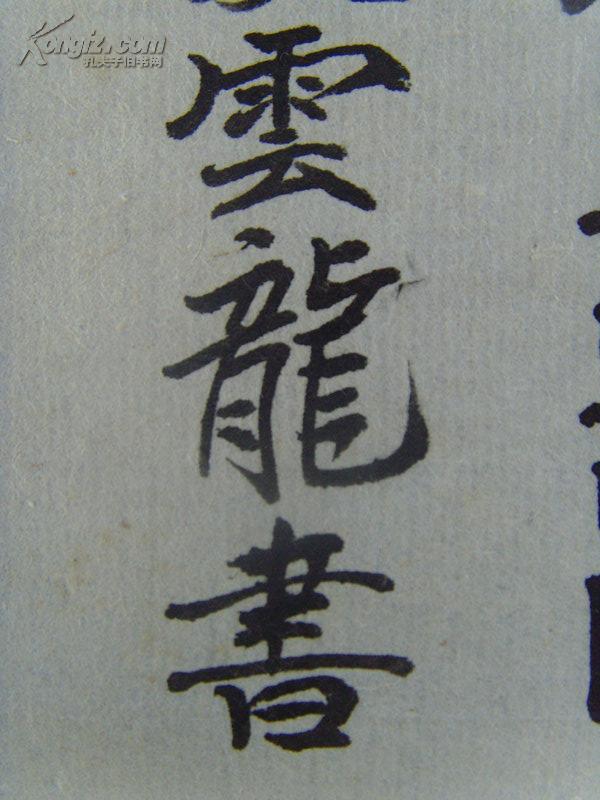 雲龍書
Kongfz.com
孔夫子旧书网